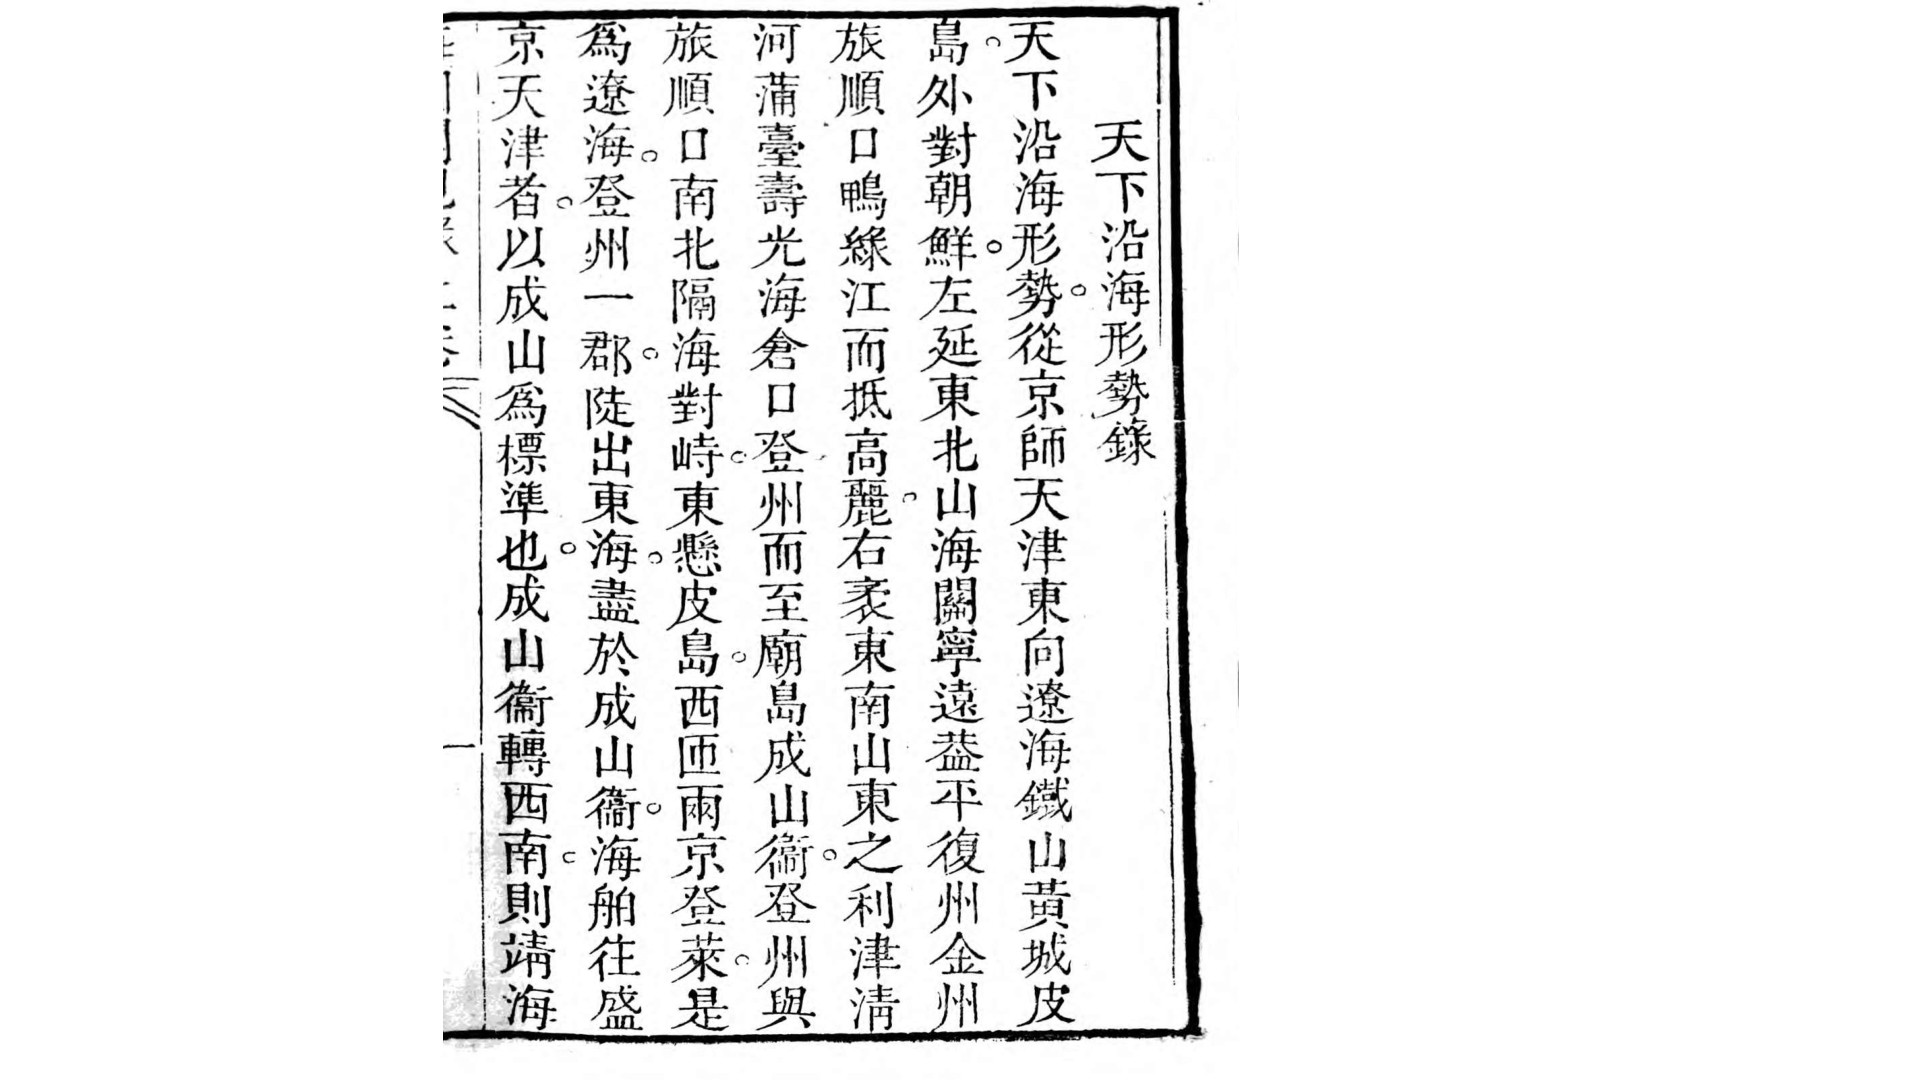 天下沿海形勢錄
天下沿海形勢。從京師天津東向遼海鐵山黃城皮
島。外對朝鮮。左延東北山海關寧遠葢平復州金州
旅順口鴨綠江而抵高麗。右袤東南山東之利津淸
河蒲臺壽光海倉口登州而至廟島成山衞。登州與
旅順口南北隔海對峙。東懸皮島。西匝兩京登萊。是
爲遼海。登州一郡。陡出東海。盡於成山衞。海舶往盛
京天津者。以成山爲標準也。成山衞轉西南。則靖海
一